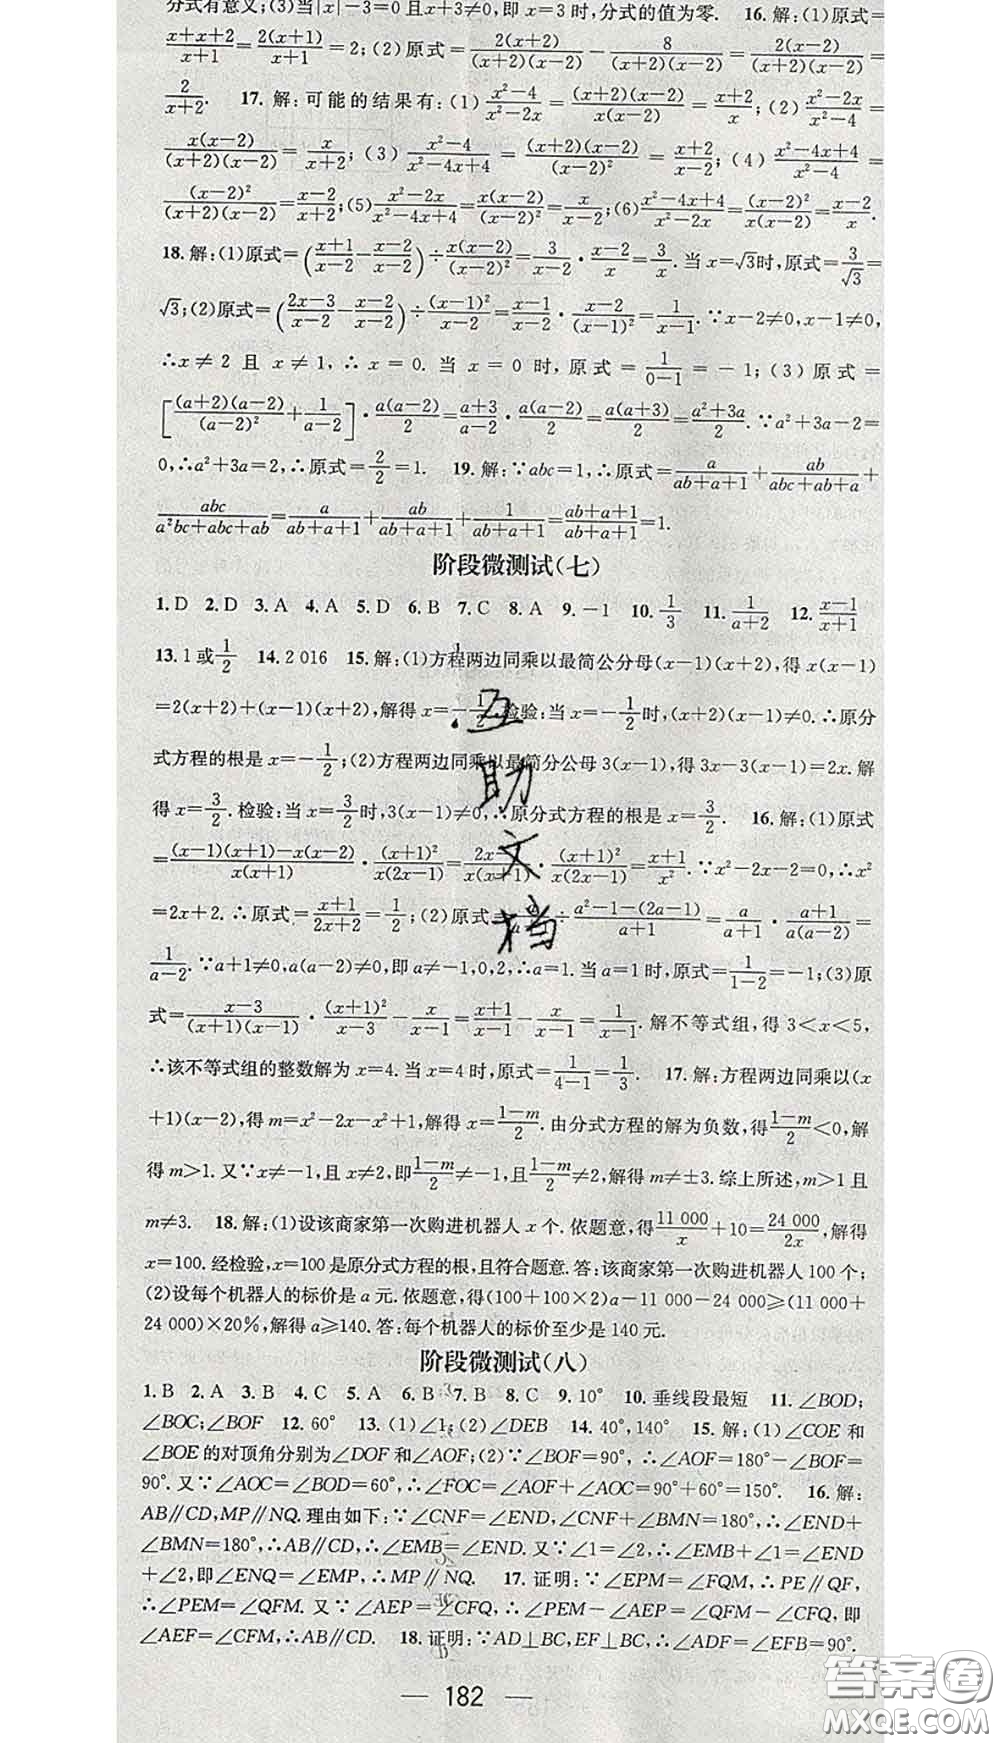 分式有意义;(3)当|x|-3=0且x+3≠0,即x=3时,分式的值为零. 16.解:(1)原式=
(x+x+2)/(x+1)=2(x+1)/(x+1)=2;(2)原式=2(x+2)/((x+2)(x-2))-8/((x+2)(x-2))=2(x-2)/((x+2)(x-2))=
2/(x+2). 17.解:可能的结果有:(1)(x²-4)/(x²-2x)=(x+2)(x-2)/(x(x-2))=(x+2)/x;(2)(x²-2x)/(x²-4)=
x(x-2)/((x+2)(x-2))=x/(x+2);(3)(x²-4)/(x²-4x+4)=(x+2)(x-2)/(x-2)²=(x+2)/(x-2);(4)(x²-4x+4)/(x²-4)=
(x-2)²/((x+2)(x-2))=(x-2)/(x+2);(5)(x²-2x)/(x²-4x+4)=x(x-2)/(x-2)²=x/(x-2);(6)(x²-4x+4)/(x²-2x)=(x-2)²/(x(x-2))=(x-2)/x.
18.解:(1)原式=((x+1)/(x-2)-(x-2)/(x-2))÷x(x-2)/(x-2)²=3/(x-2)·(x-2)/x=3/x.当x=√3时,原式=3/√3=
√3;(2)原式=((2x-3)/(x-2)-(x-2)/(x-2))÷(x-1)²/(x-2)=(x-1)/(x-2)·(x-2)/(x-1)²=1/(x-1).∵x-2≠0,x-1≠0,
∴x≠2且x≠1,∴x=0.当x=0时,原式=1/(0-1)=-1;(3)原式=
[(a+2)(a-2)/(a-2)²+1/(a-2)]·a(a-2)/2=(a+3)/(a-2)·a(a-2)/2=a(a+3)/2=(a²+3a)/2.∵a²+3a-2=
0,∴a²+3a=2,∴原式=2/2=1. 19.解:∵abc=1,∴原式=a/(ab+a+1)+ab/(abc+ab+a)+
abc/(a²bc+abc+ab)=a/(ab+a+1)+ab/(ab+a+1)+1/(ab+a+1)=(ab+a+1)/(ab+a+1)=1.
阶段微测试(七)
1.D 2.D 3.A 4.A 5.D 6.B 7.C 8.A 9.-1 10.1/3 11.1/(a+2) 12.(x-1)/(x+1)
13.1或1/2 14.2 016 15.解:(1)方程两边同乘以最简公分母(x-1)(x+2),得x(x-1)
=2(x+2)+(x-1)(x+2),解得x=-1/2.检验:当x=-1/2时,(x+2)(x-1)≠0.∴原分
式方程的根是x=-1/2;(2)方程两边同乘以最简分公母3(x-1),得3x-3(x-1)=2x.解
得x=3/2.检验:当x=3/2时,3(x-1)≠0,∴原分式方程的根是x=3/2. 16.解:(1)原式
=((x-1)(x+1)-x(x-2))/(x(x+1))·(x+1)²/(x(2x-1))=(2x-)/(x(x+1))·(x+1)²/(x(2x-1))=(x+1)/x².∵x²-2x-2=0,∴x²
=2x+2.∴原式=(x+1)/(2x+2)=1/2;(2)原式=a/÷(a²-1-(2a-1))/(a+1)=a/(a+1)·(a+1)/(a(a-2))=
1/(a-2).∵a+1≠0,a(a-2)≠0,即a≠-1,0,2,∴a=1.当a=1时,原式=1/(1-2)=-1;(3)原
式=(x-3)/((x+1)(x-1))·(x+1)²/(x-3)-x/(x-1)=(x+1)/(x-1)-x/(x-1)=1/(x-1).解不等式组,得3<x<5,
∴该不等式组的整数解为x=4.当x=4时,原式=1/(4-1)=1/3. 17.解:方程两边同乘以(x
+1)(x-2),得m=x²-2x-x²+1,解得x=(1-m)/2.由分式方程的解为负数,得(1-m)/2<0,解
得m>1.又∵x≠-1,且x≠2,即(1-m)/2≠-1,且(1-m)/2≠2,解得m≠±3.综上所述,m>1且
m≠3. 18.解:(1)设该商家第一次购进机器人x个.依题意,得11 000/x+10=24 000/2x,解得
x=100.经检验,x=100是原分式方程的根,且符合题意.答:该商家第一次购进机器人100个;
(2)设每个机器人的标价是a元.依题意,得(100+100×2)a-11 000-24 000≥(11 000+
24 000)×20%,解得a≥140.答:每个机器人的标价至少是140元.
阶段微测试(八)
1.B 2.A 3.B 4.C 5.A 6.B 7.B 8.C 9.10° 10.垂线段最短 11.∠BOD;
∠BOC;∠BOF 12.60° 13.(1)∠1;(2)∠DEB 14.40°,140° 15.解:(1)∠COE和
∠BOE的对顶角分别为∠DOF和∠AOF;(2)∵∠BOF=90°,∴∠AOF=180°-∠BOF=
90°.又∵∠AOC=∠BOD=60°,∴∠FOC=∠AOF+∠AOC=90°+60°=150°. 16.解:
AB∥CD,MP∥NQ.理由如下:∵∠CNF=∠END,∠CNF+∠BMN=180°,∴∠END+
∠BMN=180°,∴AB∥CD,∴∠EMB=∠END.又∵∠1=∠2,∴∠EMB+∠1=∠END
+∠2,即∠ENQ=∠EMP,∴MP∥NQ. 17.证明:∵∠EPM=∠FQM,∴PE∥QF,
∴∠PEM=∠QFM.又∵∠AEP=∠CFQ,∴∠PEM-∠AEP=∠QFM-∠CFQ,即
∠AEF=∠CFM,∴AB∥CD. 18.证明:∵AD⊥BC,EF⊥BC,∴∠ADF=∠EFB=90°.
— 182 —
互
助
文
档
答案圈
MXQE.COM